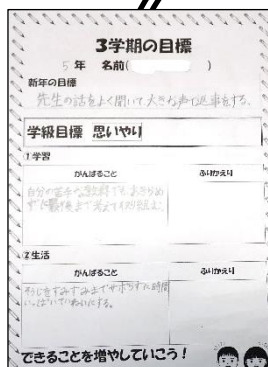 3学期の目標
5年 名前( )
新年の目標
先生の話をよく聞いて大きな声で返事をする。
学級目標 思いやり
1学習
がんばること ふりかえり
自分の苦手な教科でもあきらめ
ずに最後まで考えて取り組む。
2生活
がんばること ふりかえり
そうじをすみずみまでサボらずに時間
いっぱいていねいにする。
できることを増やしていこう!